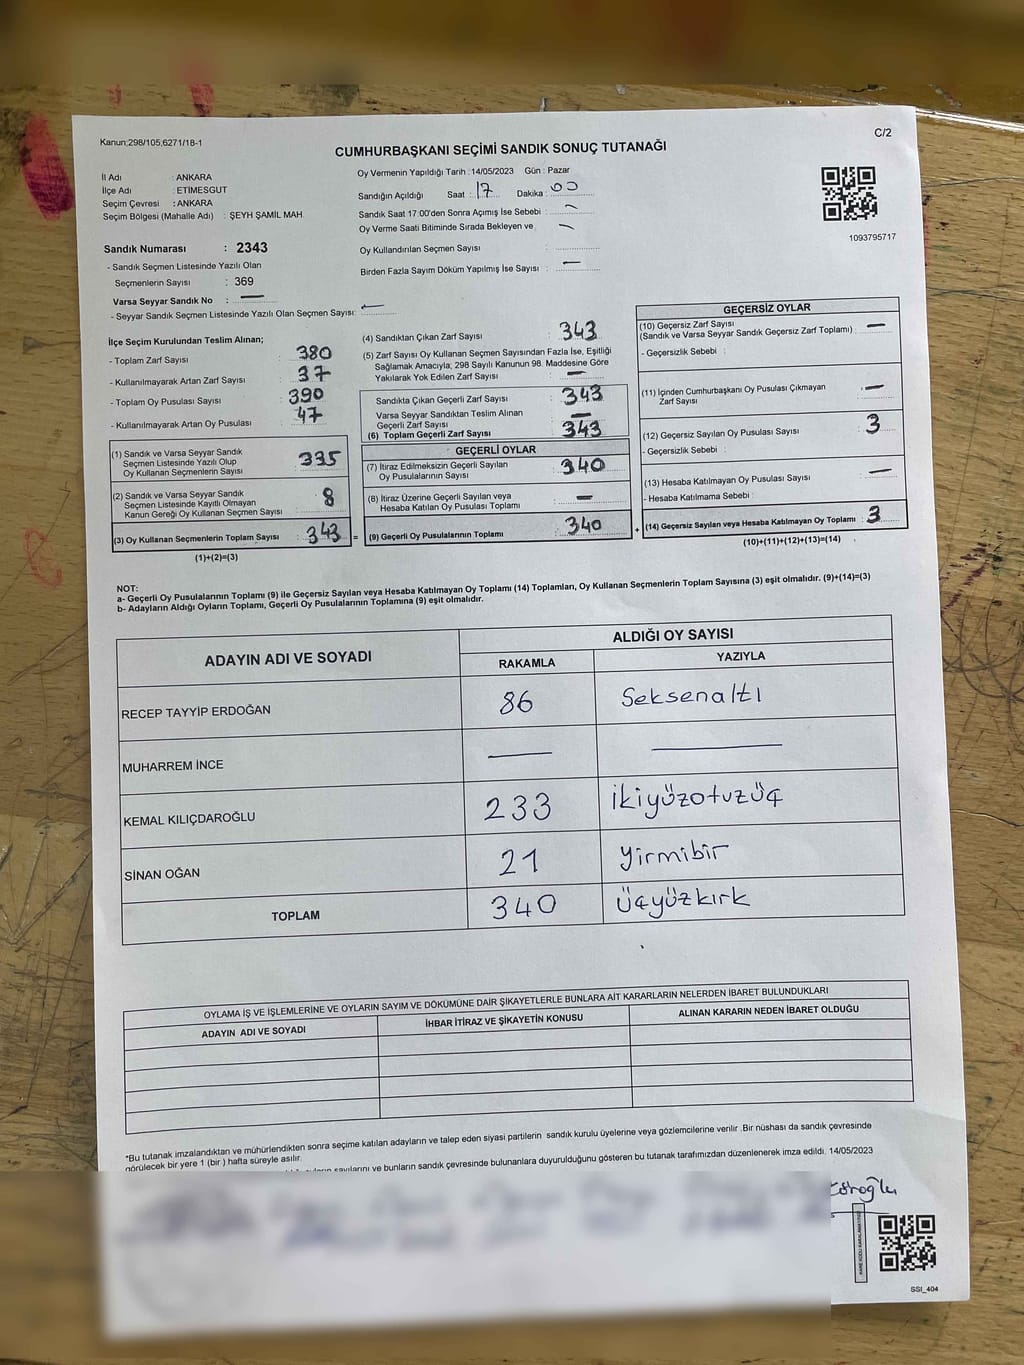 Kanun;298/105;6271/18-1
C/2
CUMHURBAŞKANI SEÇİMİ SANDIK SONUÇ TUTANAĞI
İl Adı : ANKARA
İlçe Adı : ETİMESGUT
Seçim Çevresi : ANKARA
Seçim Bölgesi (Mahalle Adı) : ŞEYH ŞAMİL MAH.
Sandık Numarası : 2343
- Sandık Seçmen Listesinde Yazılı Olan
Seçmenlerin Sayısı : 369
Varsa Seyyar Sandık No : —
- Seyyar Sandık Seçmen Listesinde Yazılı Olan Seçmen Sayısı: —
Oy Vermenin Yapıldığı Tarih : 14/05/2023 Gün : Pazar
Sandığın Açıldığı Saat : 17 Dakika : 00
Sandık Saat 17:00'den Sonra Açımış İse Sebebi : —
Oy Verme Saati Bitiminde Sırada Bekleyen ve —
Oy Kullandırılan Seçmen Sayısı :
Birden Fazla Sayım Döküm Yapılmış İse Sayısı : —
1093795717
İlçe Seçim Kurulundan Teslim Alınan;
- Toplam Zarf Sayısı : 380
- Kullanılmayarak Artan Zarf Sayısı : 37
- Toplam Oy Pusulası Sayısı : 390
- Kullanılmayarak Artan Oy Pusulası : 47
(1) Sandık ve Varsa Seyyar Sandık
Seçmen Listesinde Yazılı Olup
Oy Kullanan Seçmenlerin Sayısı : 335
(2) Sandık ve Varsa Seyyar Sandık
Seçmen Listesinde Kayıtlı Olmayan
Kanun Gereği Oy Kullanan Seçmen Sayısı : 8
(3) Oy Kullanan Seçmenlerin Toplam Sayısı : 343 =
(1)+(2)=(3)
(4) Sandıktan Çıkan Zarf Sayısı : 343
(5) Zarf Sayısı Oy Kullanan Seçmen Sayısından Fazla İse, Eşitliği
Sağlamak Amacıyla; 298 Sayılı Kanunun 98. Maddesine Göre
Yakılarak Yok Edilen Zarf Sayısı : —
Sandıkta Çıkan Geçerli Zarf Sayısı : 343
Varsa Seyyar Sandıktan Teslim Alınan
Geçerli Zarf Sayısı : —
(6) Toplam Geçerli Zarf Sayısı : 343
GEÇERLİ OYLAR
(7) İtiraz Edilmeksizin Geçerli Sayılan
Oy Pusulalarının Sayısı : 340
(8) İtiraz Üzerine Geçerli Sayılan veya
Hesaba Katılan Oy Pusulası Toplamı : —
(9) Geçerli Oy Pusulalarının Toplamı : 340 +
GEÇERSİZ OYLAR
(10) Geçersiz Zarf Sayısı
(Sandık ve Varsa Seyyar Sandık Geçersiz Zarf Toplamı) : —
- Geçersizlik Sebebi :
(11) İçinden Cumhurbaşkanı Oy Pusulası Çıkmayan
Zarf Sayısı : —
(12) Geçersiz Sayılan Oy Pusulası Sayısı : 3
- Geçersizlik Sebebi :
(13) Hesaba Katılmayan Oy Pusulası Sayısı : —
- Hesaba Katılmama Sebebi :
(14) Geçersiz Sayılan veya Hesaba Katılmayan Oy Toplamı : 3
(10)+(11)+(12)+(13)=(14)
NOT:
a- Geçerli Oy Pusulalarının Toplamı (9) ile Geçersiz Sayılan veya Hesaba Katılmayan Oy Toplamı (14) Toplamları, Oy Kullanan Seçmenlerin Toplam Sayısına (3) eşit olmalıdır. (9)+(14)=(3)
b- Adayların Aldığı Oyların Toplamı, Geçerli Oy Pusulalarının Toplamına (9) eşit olmalıdır.
ADAYIN ADI VE SOYADI
ALDIĞI OY SAYISI
RAKAMLA YAZIYLA
RECEP TAYYİP ERDOĞAN 86 Seksenaltı
MUHARREM İNCE — —
KEMAL KILIÇDAROĞLU 233 İkiyüzotuzüç
SİNAN OĞAN 21 yirmibir
TOPLAM 340 Üçyüzkırk
OYLAMA İŞ VE İŞLEMLERİNE VE OYLARIN SAYIM VE DÖKÜMÜNE DAİR ŞİKAYETLERLE BUNLARA AİT KARARLARIN NELERDEN İBARET BULUNDUKLARI
ADAYIN ADI VE SOYADI İHBAR İTİRAZ VE ŞİKAYETİN KONUSU ALINAN KARARIN NEDEN İBARET OLDUĞU
*Bu tutanak imzalandıktan ve mühürlendikten sonra seçime katılan adayların ve talep eden siyasi partilerin sandık kurulu üyelerine veya gözlemcilerine verilir .Bir nüshası da sandık çevresinde
görülecek bir yere 1 (bir ) hafta süreyle asılır.
sayılarını ve bunların sandık çevresinde bulunanlara duyurulduğunu gösteren bu tutanak tarafımızdan düzenlenerek imza edildi. 14/05/2023
SSI_404